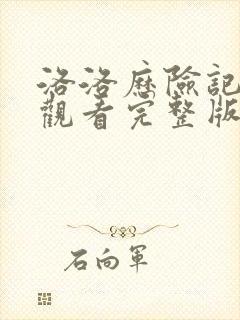 洛洛歷險記
觀看完整版
石向軍